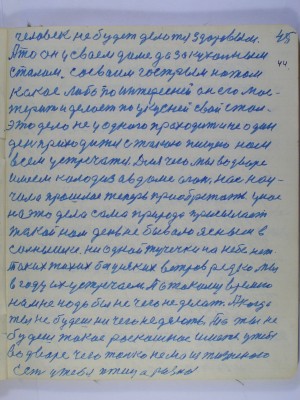 человек не будет делоти здоровым. 45
А то он у своем доме да за кухонным 44
столом. Со своем гострым ножом
какое либо поинтересней он его мас-
терит и делоет повкусней свой стол-
это дело не у одного проходит и не один
ден приходитса с такою пищею нам
всем устречатса. Для чего мы во дворе
имеем колодез а в доме огон, нас нау-
чило прошлое теперь приобретать
на это дело сама природа присылает
такой нам ден не бывало ясным в
солнышке. ни одной тучечки на небе нет.
таких таких ветров редко мы
в году их устречаем. А в такое время
нам не надо было не чего не делать. А когда
ты не будеш ничего не делоть. То ты не
будеш такое роскошное имет у себе
во дворе чего только нема из жизненого
Есть у тебя птица разная